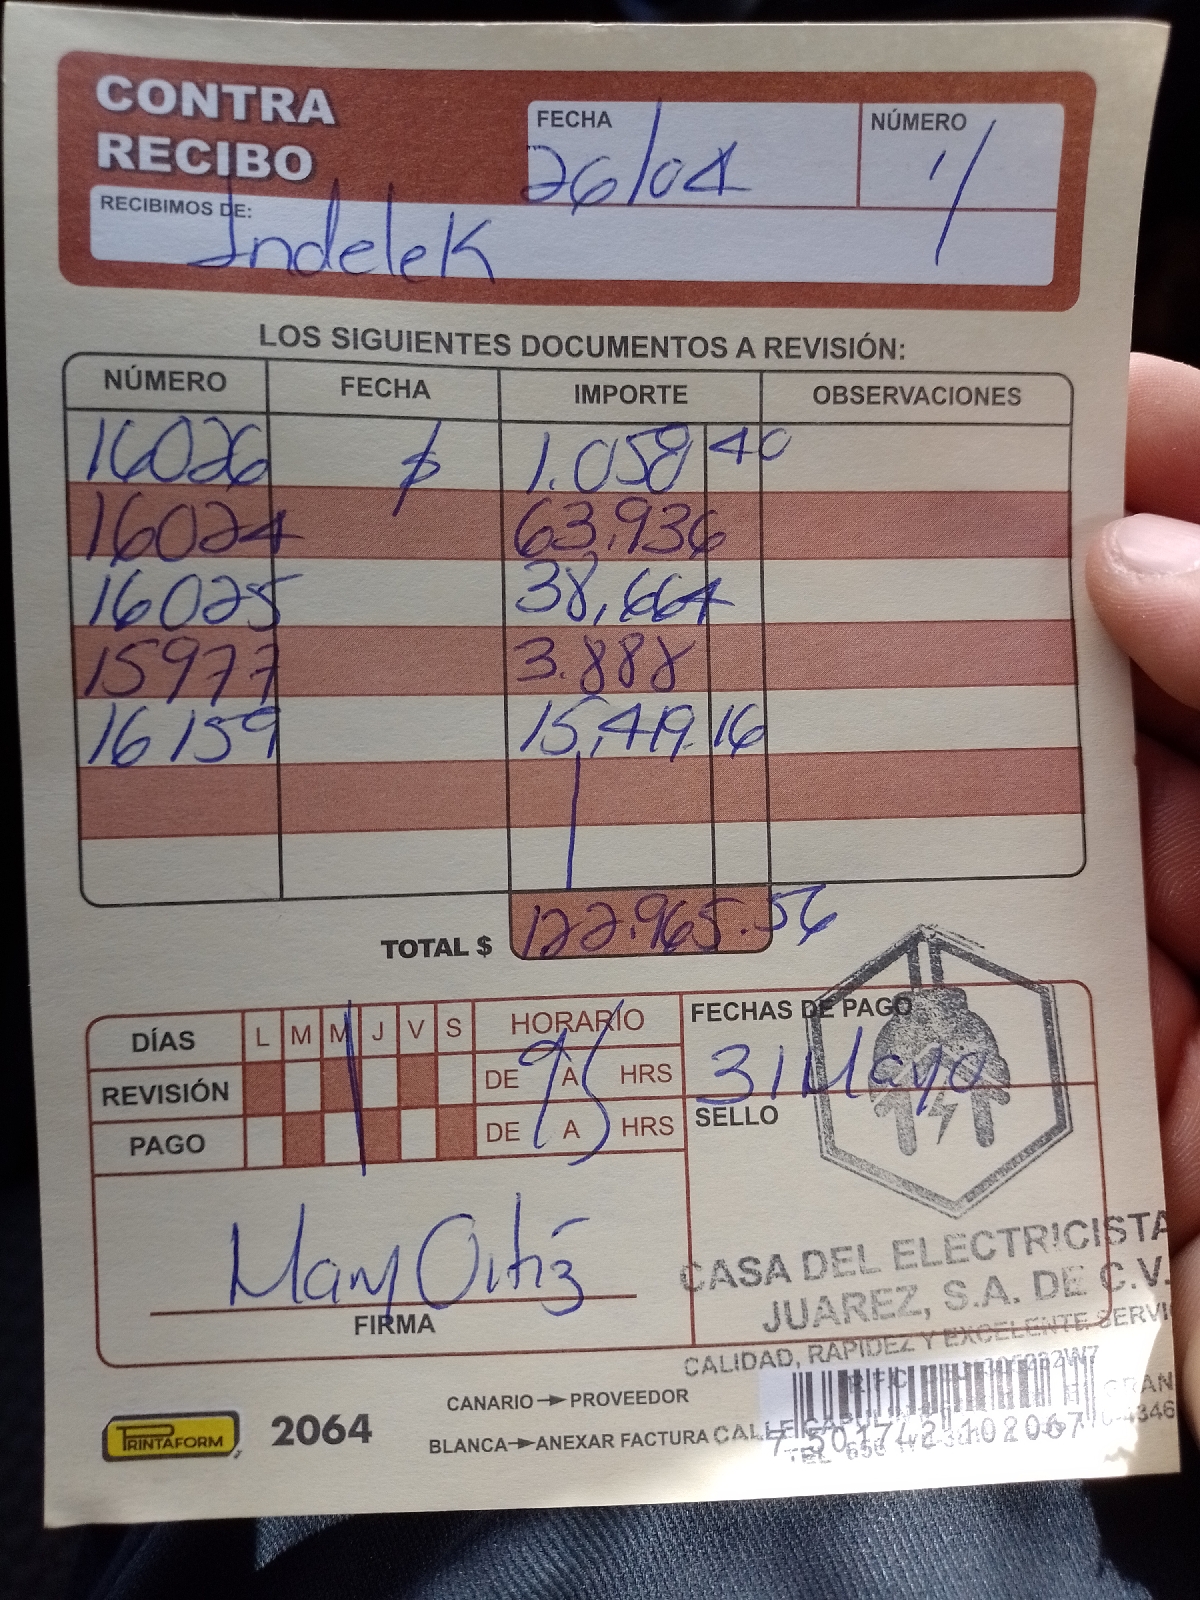 CONTRA
RECIBO
FECHA
26/04
NÚMERO
RECIBIMOS DE:
Indelek
LOS SIGUIENTES DOCUMENTOS A REVISIÓN:
NÚMERO FECHA IMPORTE OBSERVACIONES
16026 $ 1.058 40
16024 63,936
16025 38,664
15977 3.888
16159 15,419. 16
TOTAL $ 122.965.56
DÍAS L M M J V S HORARIO
REVISIÓN DE 9 A 5 HRS
PAGO DE A HRS
FECHAS DE PAGO
31 Mayo
SELLO
Mary Ortiz
FIRMA
CASA DEL ELECTRICISTA
JUAREZ, S.A. DE C.V.
CALIDAD, RAPIDEZ Y EXCELENTE SERVI
PRINTAFORM 2064
CANARIO→PROVEEDOR
BLANCA→ANEXAR FACTURA
CALLE
7 501742 102067